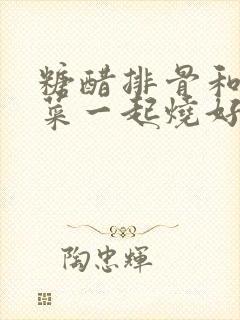 糖醋排骨和
菜一起燒好
陶忠輝